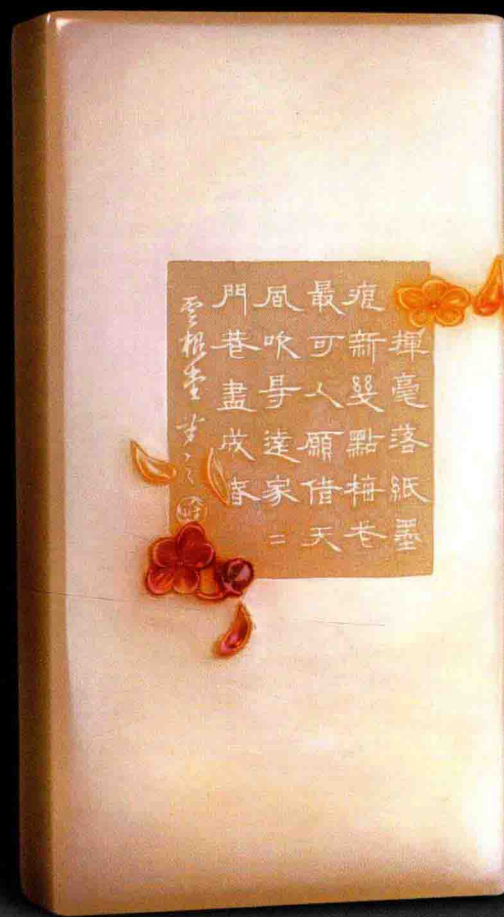 揮毫落紙墨
痕新幾點梅花
最可人願借天
風吹㝵遠家二
門巷盡成春
雲根堂